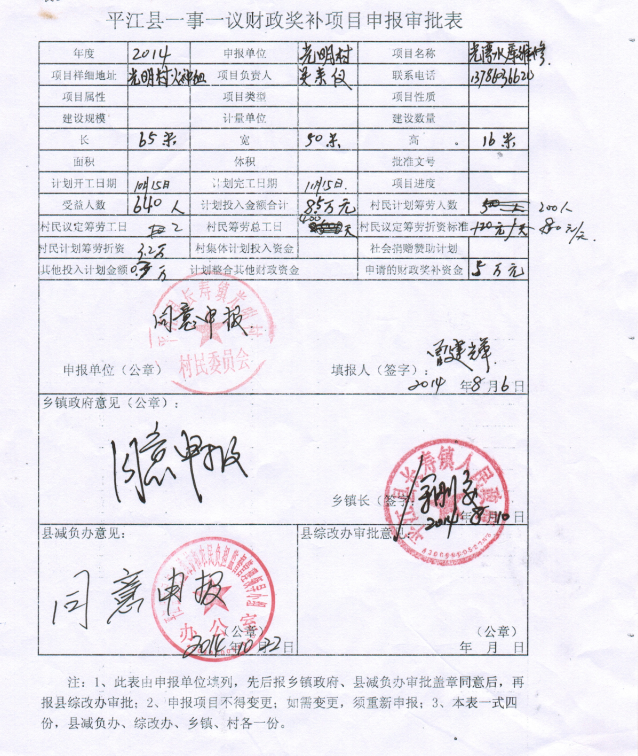 平江县一事一议财政奖补项目申报审批表
年度 2014 申报单位 光明村 项目名称 光 水库维修
项目样细地址 光明村火神组 项目负责人 联系电话
项目属性 项目类型 项目性质
建设规模 计量单位 建设数量
长 65米 宽 50米 高 16米
面积 体积 批准文号
计划开工日期 10月15日 计划完工日期 10月15日. 项目进度
受益人数 640人 计划投入金额合计 8.5万元 村民计划筹劳人数 200人
村民议定筹劳工日 2 村民筹劳总工日 400 天 村民议定筹劳折资标准 120元/天 80元/天
村民计划筹劳折资 3.2万 村集体计划投入资金 社会捐赠赞助计划
其他投入计划金额 0.3万 计划整合其他财政资金 申请的财政奖补资金 5万元
同意申报
村民委员会
申报单位（公章） 填报人（签字）：
2014年8月6日
乡镇政府意见（公章）：
同意申报
平江县长寿镇人民政府
乡镇长（签字）
2014年8月10日
县减负办意见： 县综改办审批意见
同意申报
办公室
（公章） （公章）
2014年10月22日 年 月 日
注：1、此表由申报单位填列，先后报乡镇政府、县减负办审批盖章同意后，再
报县综改办审批；2、申报项目不得变更；如需变更，须重新申报；3、本表一式四
份，县减负办、综改办、乡镇、村各一份。